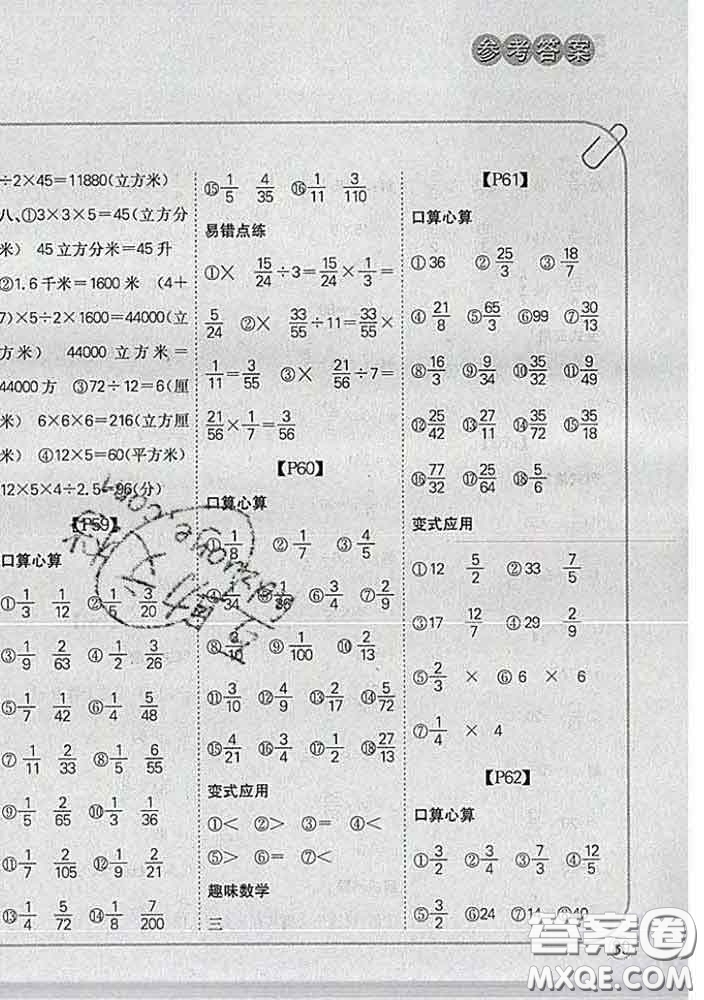 参考答案
÷2×45=11880(立方米)
八、①3×3×5=45(立方分
米) 45立方分米=45升
②1.6千米=1600米 (4+
7)×5÷2×1600=44000(立
方米) 44000立方米=
44000方 ③72÷12=6(厘
米) 6×6×6=216(立方厘
米) ④12×5=60(平方米)
12×5×4÷2.5=96(分)
【P59】
口算心算
①1/3 1/12 ②1/5 3/20
③1/9 2/63 ④1/2 3/26
⑤1/7 1/42 ⑥1/4 5/48
⑦1/11 2/33 ⑧1/5 6/55
⑨1/5 2/65 ⑩1/3 1/36
⑪1/7 2/105 ⑫1/9 2/21
⑬1/4 5/72 ⑭1/8 7/200
⑮1/5 4/35 ⑯1/11 3/110
易错点练
①× 15/24÷3=15/24×1/3=
5/24 ②× 33/55÷11=33/55×
1/11=3/55 ③× 21/56÷7=
21/56×1/7=3/56
【P60】
口算心算
①1/8 ②1/7 ③4/5
⑥3/4 ⑦2/9
⑧3/10 ⑨1/100 ⑩2/13
⑪3/10 ⑫4/9 ⑬2/17 ⑭5/72
⑮4/21 ⑯3/4 ⑰1/4 ⑱27/13
变式应用
①< ②> ③= ④<
⑤> ⑥= ⑦<
趣味数学
三
【P61】
口算心算
①36 ②25/3 ③18/7
④21/8 ⑤65/3 ⑥99 ⑦30/13
⑧16/3 ⑨9/34 ⑩35/32 ⑪9/49
⑫25/42 ⑬27/11 ⑭35/72 ⑮35/18
⑯77/32 ⑰25/64 ⑱5/6
变式应用
①12 5/2 ②33 7/5
③17 12/7 ④29 2/9
⑤2/3 × ⑥6 × 6
⑦1/4 × 4
【P62】
口算心算
①3/2 ②3/4 ③7/3 ④12/5
⑤3/2 ⑥24 ⑦14 ⑧40
答案圈
MXQE.COM